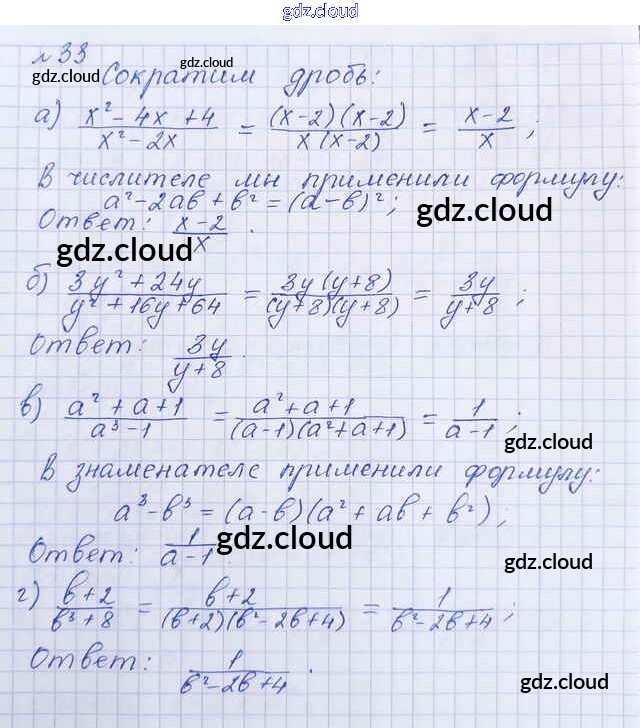 gdz.cloud
№ 33 gdz.cloud
gdz.cloud Сократим дробь:
а) (x² - 4x + 4)/(x² - 2x) = ((x-2)(x-2))/(x(x-2)) = (x-2)/x ;
В числителе мы применили формулу:
a² - 2ab + b² = (a-b)² ; gdz.cloud
Ответ: (x-2)/x .
gdz.cloud
б) (3y² + 24y)/(y² + 16y + 64) = (3y(y+8))/((y+8)(y+8)) = 3y/(y+8) ;
gdz.cloud
Ответ: 3y/(y+8) .
в) (a² + a + 1)/(a³ - 1) = (a² + a + 1)/((a-1)(a² + a + 1)) = 1/(a-1) ;
gdz.cloud
В знаменателе применили формулу:
a³ - b³ = (a-b)(a² + ab + b²) ;
Ответ: 1/(a-1) . gdz.cloud
gdz.cloud
г) (b+2)/(b³+8) = (b+2)/((b+2)(b²-2b+4)) = 1/(b²-2b+4) ;
Ответ: 1/(b²-2b+4) .
gdz.cloud